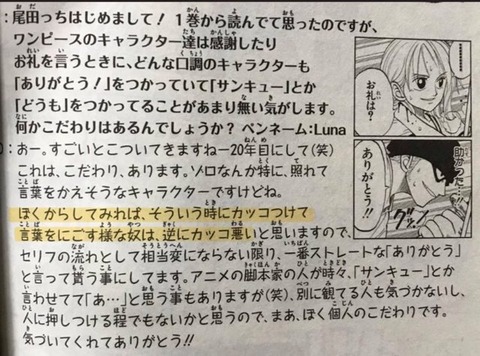 ：尾田っちはじめまして！１巻から読んでて思ったのですが、
ワンピースのキャラクター達は感謝したり
お礼を言うときに、どんな口調のキャラクターも
「ありがとう！」をつかっていて「サンキュー」とか
「どうも」をつかってることがあまり無い気がします。
何かこだわりはあるんでしょうか？ ペンネーム：Luna
：おー。すごいとこついてきますねー20年目にして(笑)
これは、こだわり、あります。ゾロなんか特に、照れて
言葉をかえそうなキャラクターですけどね。
ぼくからしてみれば、そういう時にカッコつけて
言葉をにごす様な奴は、逆にカッコ悪いと思いますので、
セリフの流れとして相当変にならない限り、一番ストレートな「ありがとう」
と言って貰う事にしてます。アニメの脚本家の人が時々、「サンキュー」とか
言わせてて「あ…」と思う事もありますが(笑)、別に観てる人も気づかないし、
人に押しつける程でもないかと思うので、まあ、ぼく個人のこだわりです。
気づいてくれてありがとう!!
お礼は？
助かった…!!
ありがとう!!
グググッ